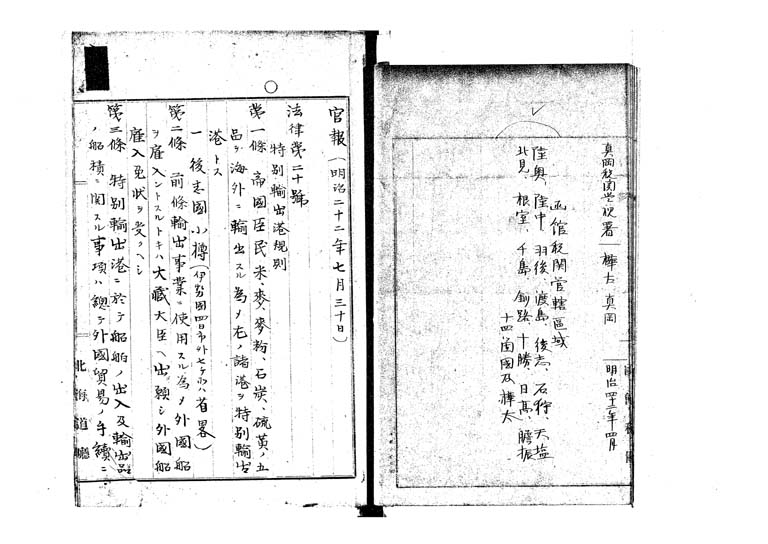 真岡税関支署｜樺太 真岡｜明治四十二年四月
函館税関管轄区域
陸奥、陸中、羽後、渡島、後志、石狩、天塩
北見、根室、千島、釧路、十勝、日高、膽振
十四箇國及樺太
官報(明治二十二年七月三十日)
法律第二十號
特別輸出港規則
第一條 帝國臣民米、麥、麥粉、石炭、硫黄ノ五
品ヲ海外ニ輸出スル為メ左ノ諸港ヲ特別輸出
港トス
一 後志國小樽(伊勢國四日市外七ヶ所ハ省畧)
第二條 前條輸出事業ニ使用スル為メ外國船
ヲ雇入ントスルトキハ大藏大臣ヘ出願シ外國船
雇入免状ヲ受クヘシ
第三條 特別輸出港ニ於テ船舶ノ出入及輸出品
ノ船積ニ関スル事項ハ總テ外國貿易ノ手續ニ
北海道廳